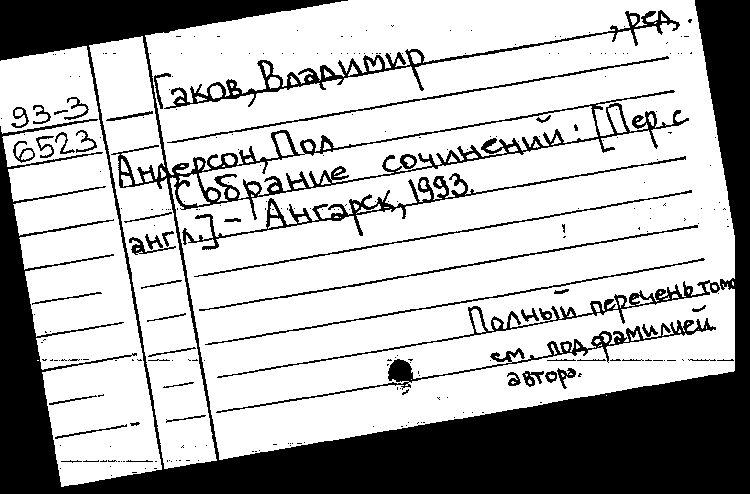 Гаков, Владимир , ред.
93-3
6523
Андерсон, Пол
Собрание сочинений: [Пер. с
англ.]. - Ангарск, 1993.
Полный перечень томо
см. под фамилией
автора.